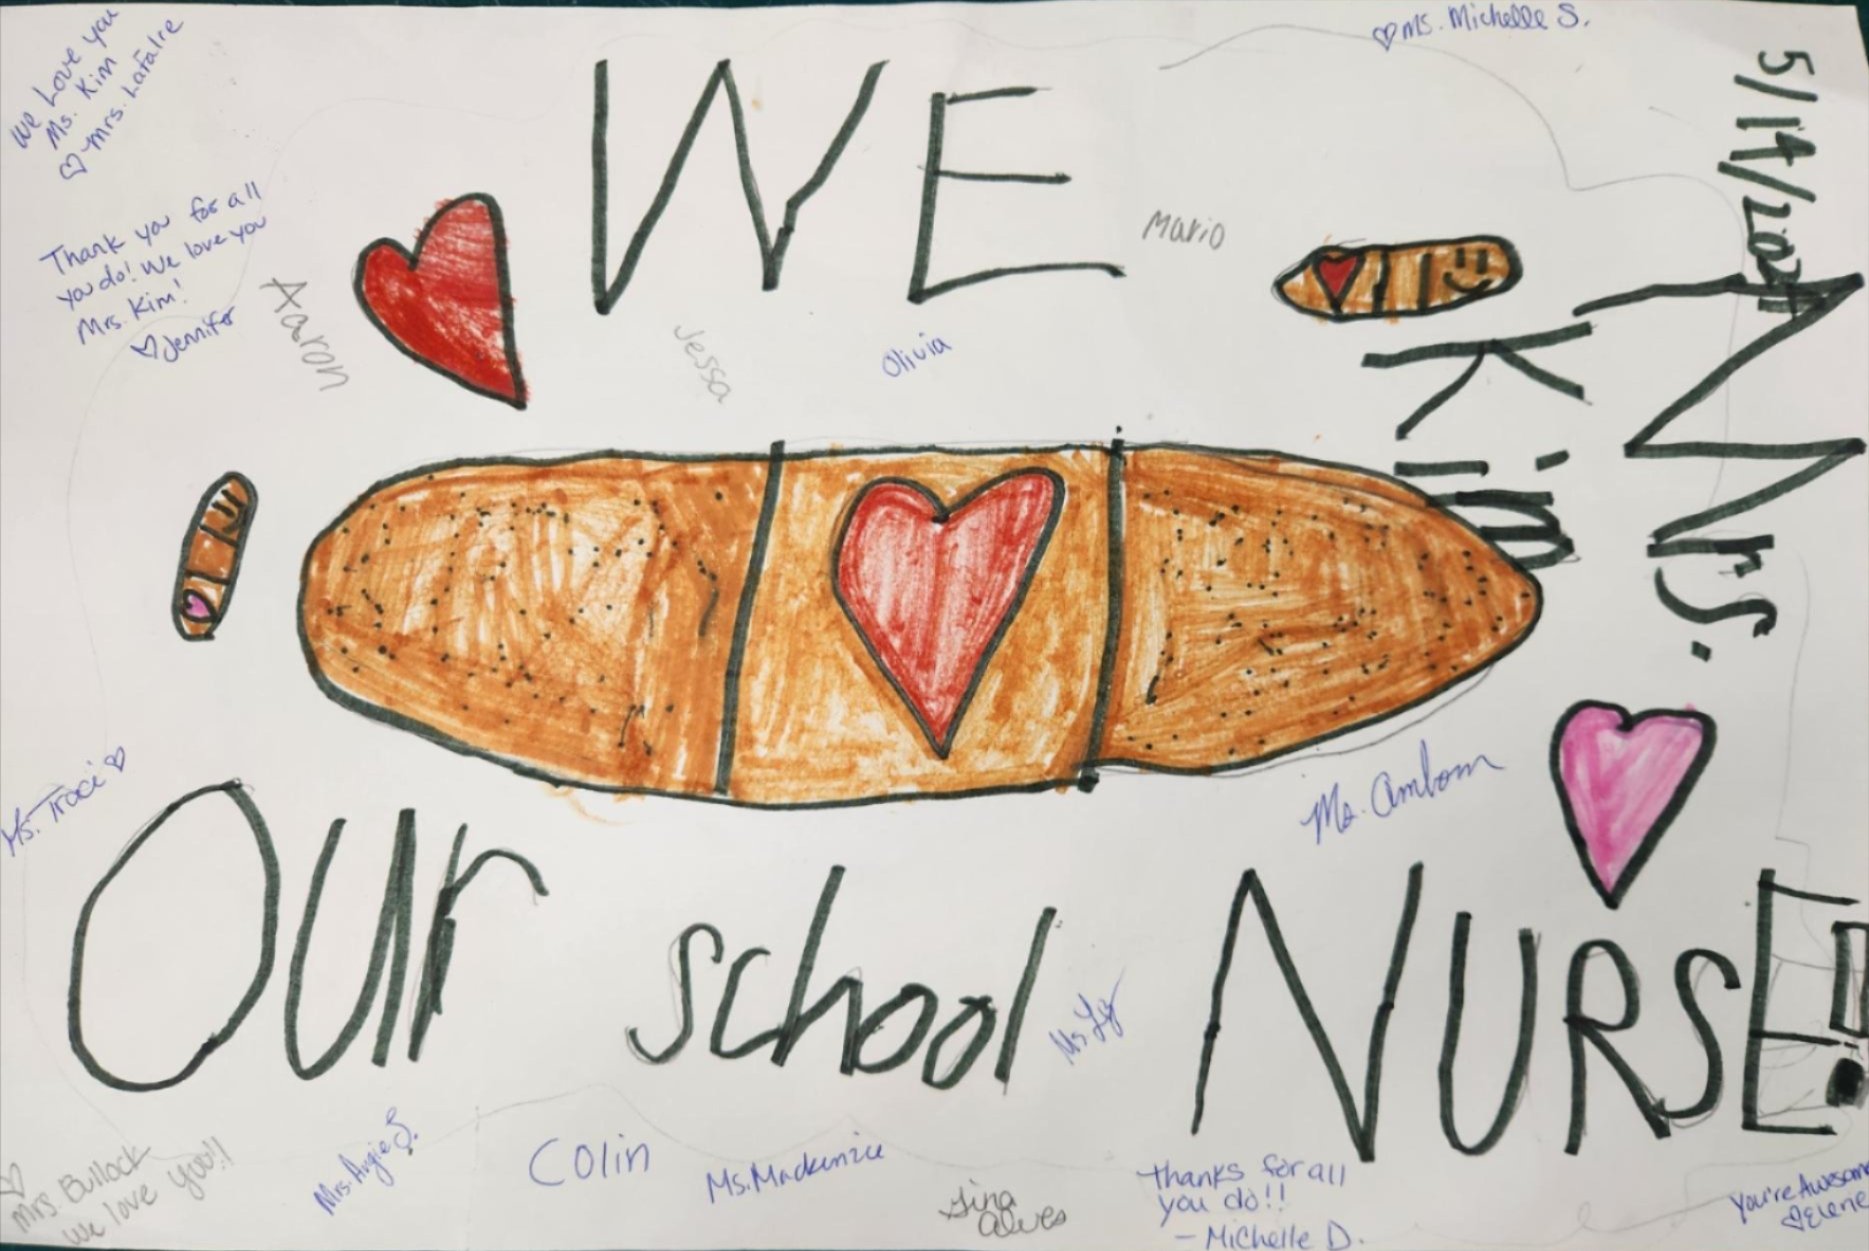 We Love you
Ms. Kim
♡ Mrs. Lafalce
♡ Ms. Michelle S.
WE
Thank you for all
you do! We love you
Mrs. Kim!
♡ Jennifer
Aaron
Jessa
Olivia
Mario
5/14/2021
Mrs.
Kim
Ms. Traci ♡
Ms.
OUr school NURSE!!
Ms. Liz
♡
Mrs. Bullock
We love you!!
Mrs. Angie S.
Colin
Ms. Mackenzie
Gina
Alves
Thanks for all
you do!!
- Michelle D.
You're Awesome
♡ Elene